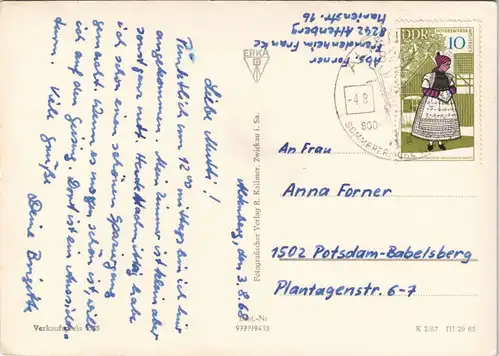 Abs. Forner
Fremdenheim Franke
8242 Altenberg
Marienstr. 16
Altenberg, den 3.8.68
Liebe Mutti!
Pünktlich um 12⁰⁰ mittags bin ich hier
angekommen. Mein Zimmer ist klein aber
sonst ganz nett. Heute Nachmittag habe
ich schon einen schönen Spaziergang
gemacht. Wenn es morgen schön ist will
ich auf den Geising. Dort ist ein Aussichts-
turm. Viele Grüße
Deine Brigitte
Verkaufspreis
ERKA
Fotografischer Verlag R. Kallmer, Zwickau i. Sa.
Best.-Nr
K 2/67 III/29 65
DDR
10
-4.8
800
SOMMER
An Frau
Anna Forner
1502 Potsdam-Babelsberg
Plantagenstr. 6-7